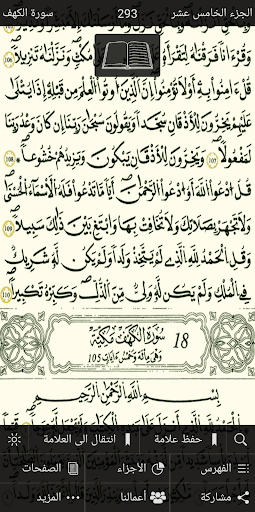 الجزء الخامس عشر 293 سورة الكهف
وَقُرْءَاناً فَرَقْنَٰهُ لِتَقْرَأَهُۥ وَنَزَّلْنَٰهُ تَنزِيلاً 106
قُلَ اٰمِنُواْ بِهِۦٓ أَوْ لَا تُومِنُوٓاْ إِنَّ اَلذِينَ أُوتُواْ اُلْعِلْمَ مِن قَبْلِهِۦٓ إِذَا يُتْلَىٰ
عَلَيْهِمْ يَخِرُّونَ لِلَاذْقَانِ سُجَّداً وَيَقُولُونَ سُبْحَٰنَ رَبِّنَآ إِن كَانَ وَعْدُ رَبِّنَا
لَمَفْعُولاً 107 وَيَخِرُّونَ لِلَاذْقَانِ يَبْكُونَ وَيَزِيدُهُمْ خُشُوعاً 108
قُلُ اُدْعُواْ اُللَّهَ أَوُ اُدْعُواْ اُلرَّحْمَٰنَ أَيّاً مَّا تَدْعُواْ فَلَهُ اُلَاسْمَآءُ اُلْحُسْنَىٰ
وَلَا تَجْهَرْ بِصَلَاتِكَ وَلَا تُخَافِتْ بِهَا وَابْتَغِ بَيْنَ ذَٰلِكَ سَبِيلاً 109
وَقُلِ اِلْحَمْدُ لِلهِ اِلذِے لَمْ يَتَّخِذْ وَلَداً وَلَمْ يَكُن لَّهُۥ شَرِيكٌ
فِے اِلْمُلْكِ وَلَمْ يَكُن لَّهُۥ وَلِيٌّ مِّنَ اَلذُّلِّ وَكَبِّرْهُ تَكْبِيراً 110
18 سُورَةُ الكَهْفِ مَكِّيَّة
وَهِيَ مِائَة وَخَمْس ءَايَات 105
بِسْمِ اِللَّهِ اِلرَّحْمَٰنِ اِلرَّحِيمِ
حفظ علامة انتقال الى العلامة
الفهرس الأجزاء الصفحات
مشاركة أعمالنا المزيد